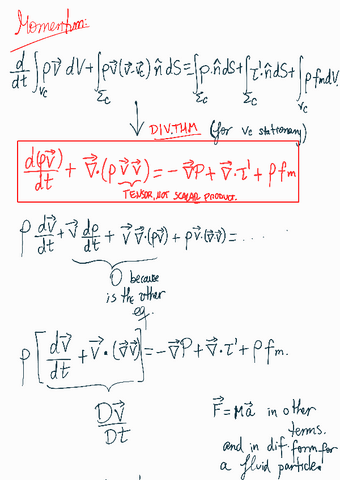 Momentum:
d/dt ∫_Vc ρv⃗ dV + ∫_Σc ρv⃗(v⃗·v⃗c) n̂dS = ∫_Σc p·n̂dS + ∫_Σc τ'·n̂dS + ∫_Vc ρfmdV
DIV.THM (for Vc stationary)
d(ρv⃗)/dt + ∇⃗·(ρv⃗v⃗) = -∇⃗P + ∇⃗·τ' + ρfm
TENSOR, NOT SCALAR PRODUCT.
ρ dv⃗/dt + v⃗ dρ/dt + v⃗ ∇⃗·(ρv⃗) + ρv⃗·(∇⃗·v⃗) = ....
0 because
is the other
eq.
ρ[dv⃗/dt + v⃗·(∇⃗v⃗)] = -∇⃗P + ∇⃗·τ' + ρfm.
Dv⃗/Dt
F⃗=Ma⃗ in other
terms.
and in dif. form for
a fluid particle.